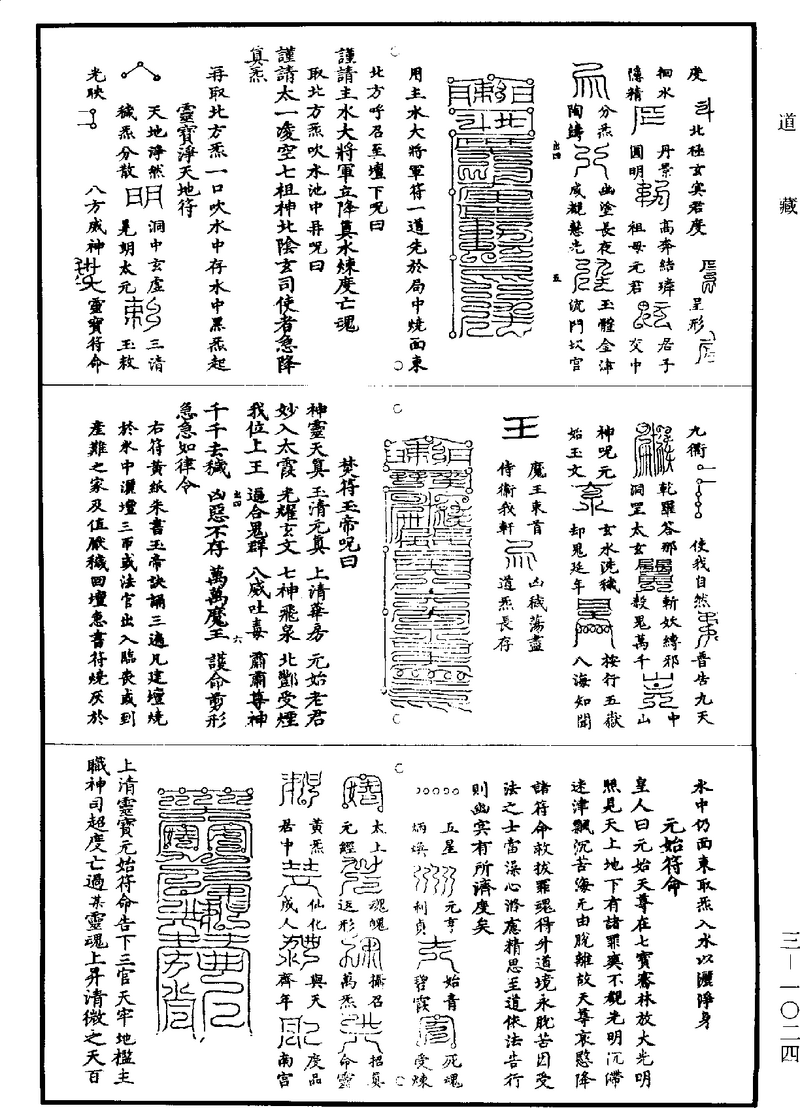 道藏
三—一〇二四
度
北極玄冥君度
呈形
細水
丹景
高奔結璘
君子
隱精
圓明
祖母元君
交中
分炁
幽塗長夜
玉體金津
陶鑄
咸覩慧光
沉門坎宮
用主水大將軍符一道先於局中燒面東
北方呼召至壇下呪曰
謹請主水大將軍立降真水煉度亡魂
取北方炁吹水池中再呪曰
謹請太一凌空七祖神北陰玄司使者急降
真炁
再取北方炁一口吹水中存水中黑炁起
靈寶淨天地符
天地淨然
洞中玄虛
三清
穢炁分散
晃朗太元
玉敕
光映
八方威神
靈寶符命
九衢
使我自然
普告九天
乾羅答那
中
洞罡太玄
斬妖縛邪
殺鬼萬千
山
神呪元
玄水洗穢
按行五嶽
始玉文
却鬼延年
八海知聞
王
魔王束首
凶穢蕩盡
侍衛我軒
道炁長存
焚符玉帝呪曰
神靈天真 玉清元真 上清華房 元始老君
妙入太霞 光耀玄文 七神飛泉 北酆受煙
我位上王 逼合鬼群 八威吐毒 肅肅尊神
千千去穢 凶惡不存 萬萬魔王 護命剪形
急急如律令
右符黃紙朱書玉帝訣誦三遍凡建壇燒
於水中灑壇三帀或法官出入臨喪或到
產難之家及值厭穢回壇急書符燒灰於
水中仍面東取炁入水以灑淨身
元始符命
皇人曰元始天尊在七寶騫林放大光明
照見天上地下有諸罪爽不覩光明沉滯
迷津飄沉苦海无由脫離故天尊哀愍降
諸符命救拔罪魂得外道境永脫苦因受
法之士當澡心游慮精思至道依法告行
則幽冥有所濟度矣
五星
元亨
始青
死魂
炳煥
利貞
碧霞
受煉
太上
魂魄
攝召
招真
元經
返形
萬炁
命靈
黃炁
仙化
與天
度品
君中
成人
齊年
南宮
上清靈寶元始符命告下三官天牢地檻主
職神司超度亡過某靈魂上昇清微之天百